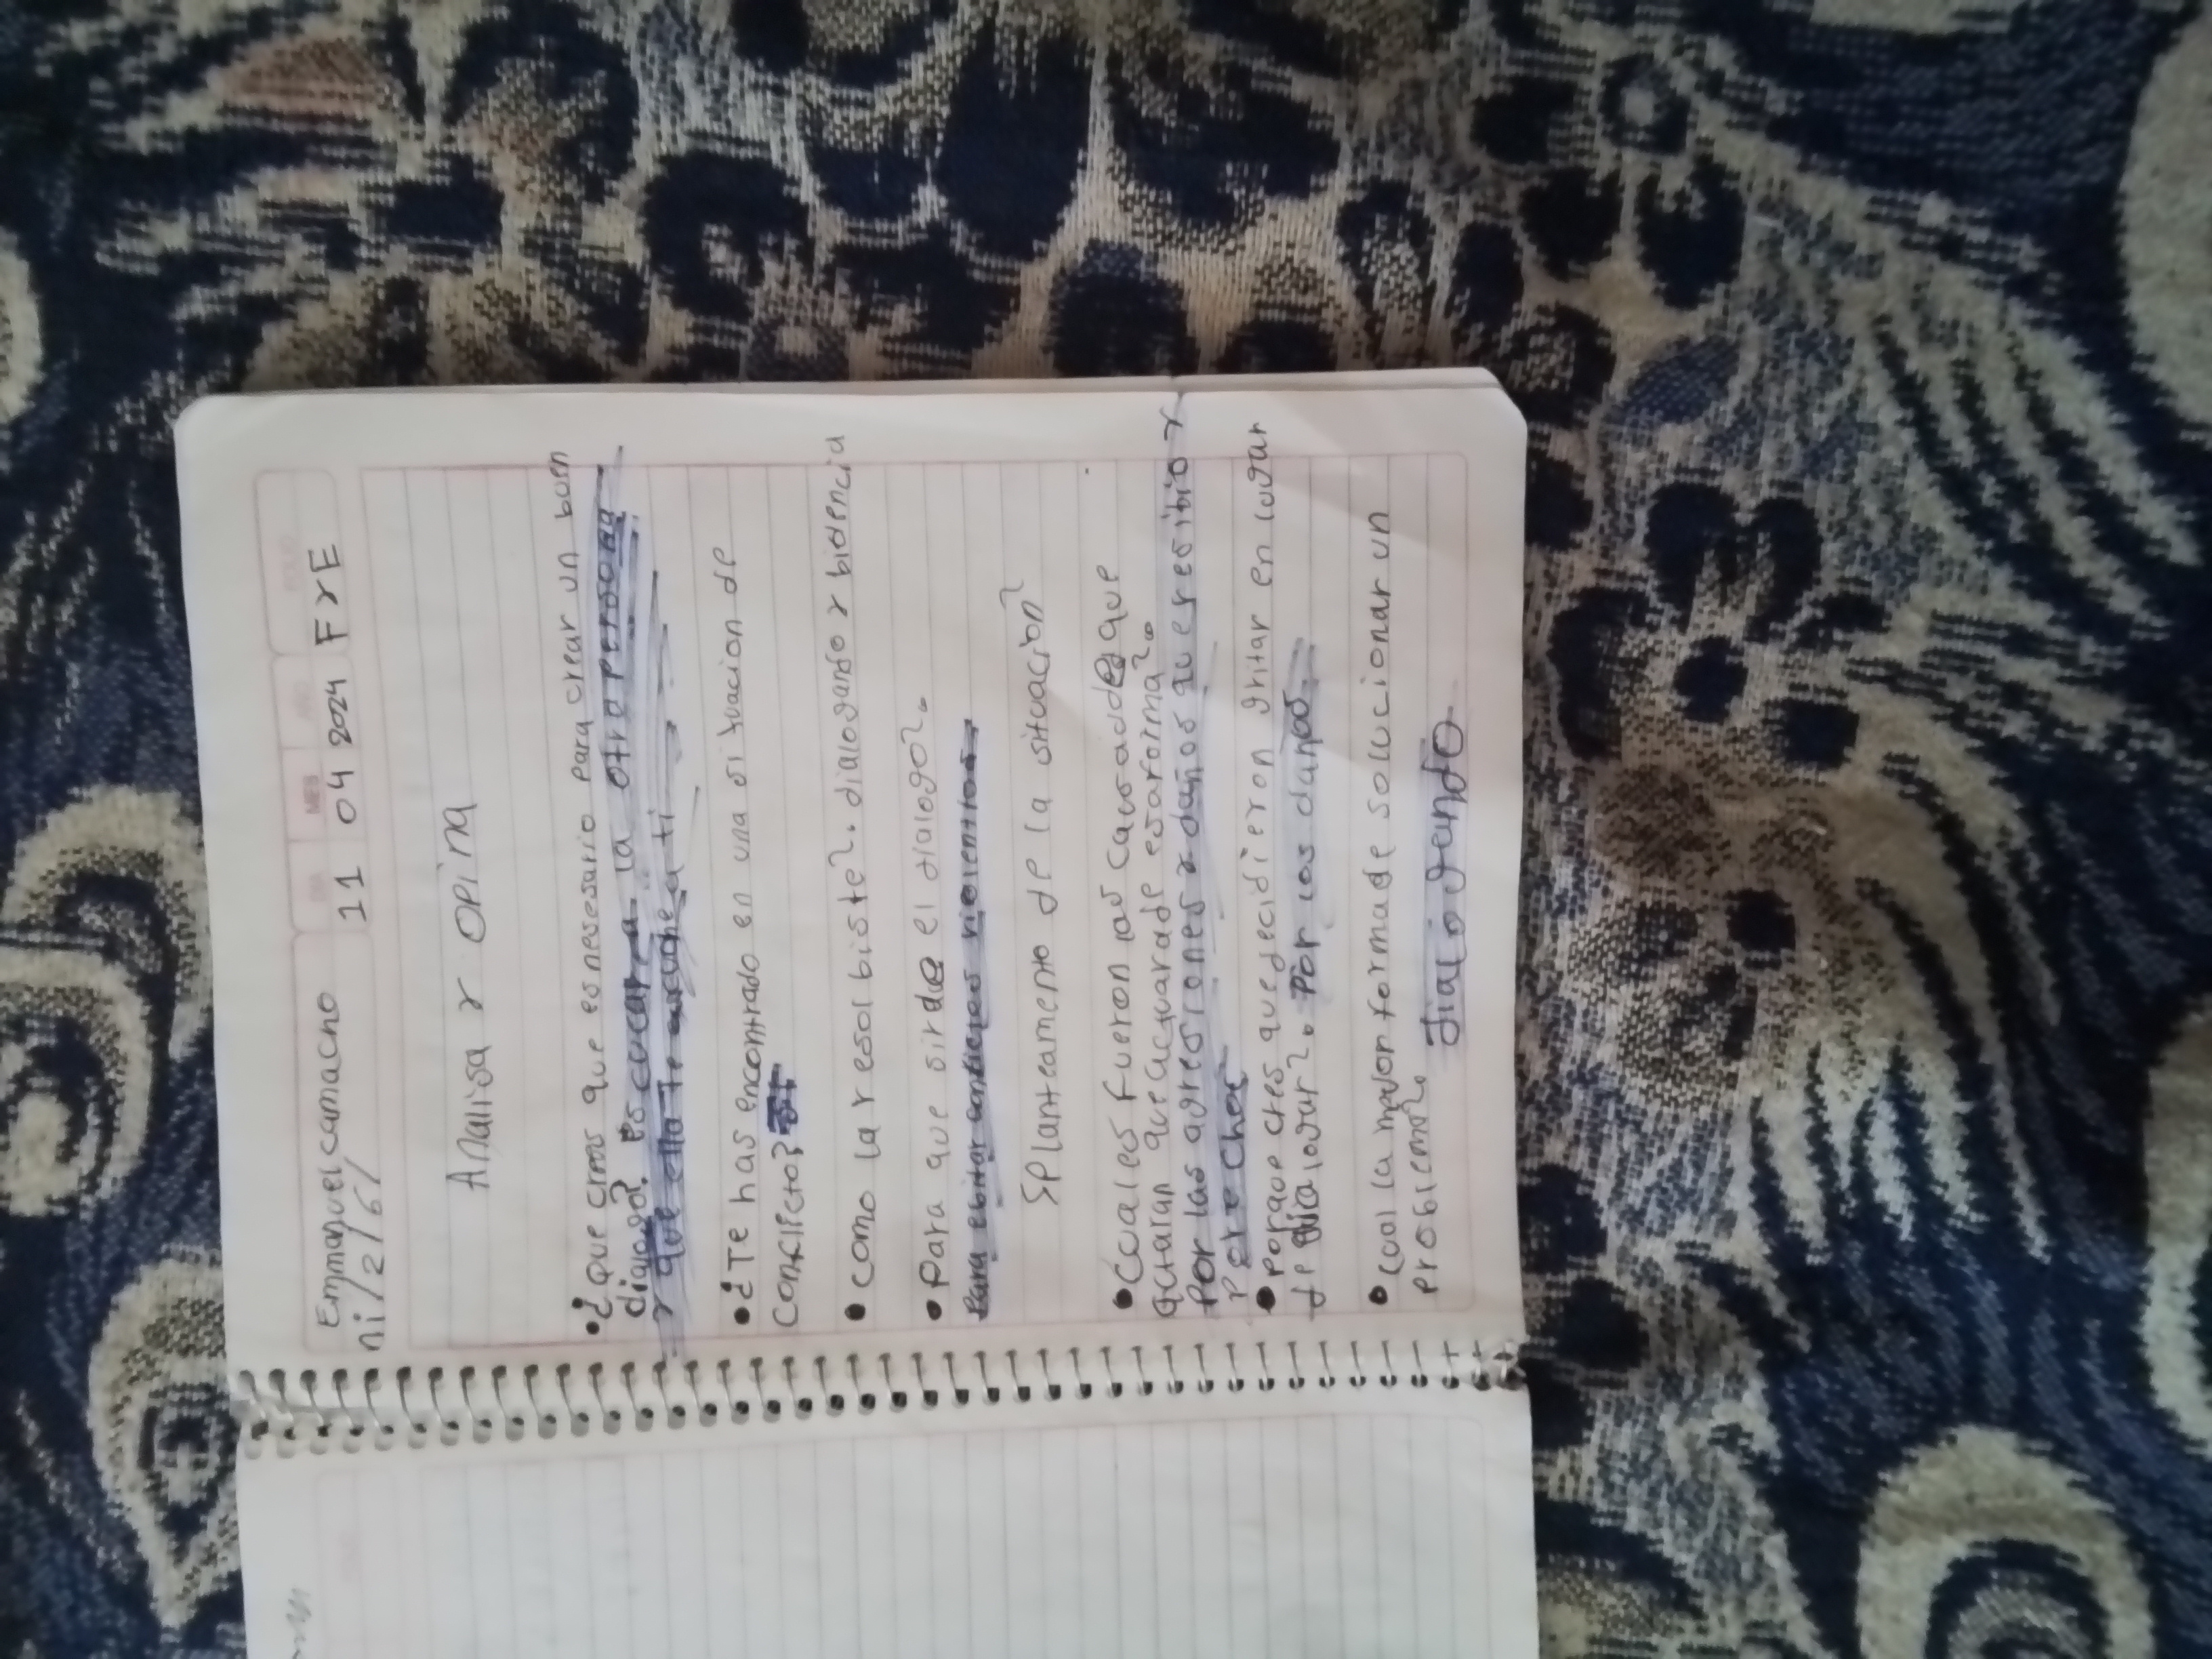 Emmanuel camacho 11 04 2024 FYE
ni/2/6/
Analisa y opina
• ¿que crees que es nesesario para crear un buen
dialogo? escucar a la otra persona
y que ella te escuche a ti
• ¿Te has encontrado en una situacion de
conflicto? si
• como la resolbiste?. dialogando y biolencia
• Para que sirde el dialogo?.
Para ebitar conflictos violentos
Splanteamento de la situación?
• Cuales fueron las causas de que
actuaran que actuara de esa forma?.
Por las agresiones y daños que resibio y
reteches
• Porque cres que decidieron gritar en lugar
de dialogar?. Por los daños.
• Cual la major forma de solucionar un
problema?. dialogando